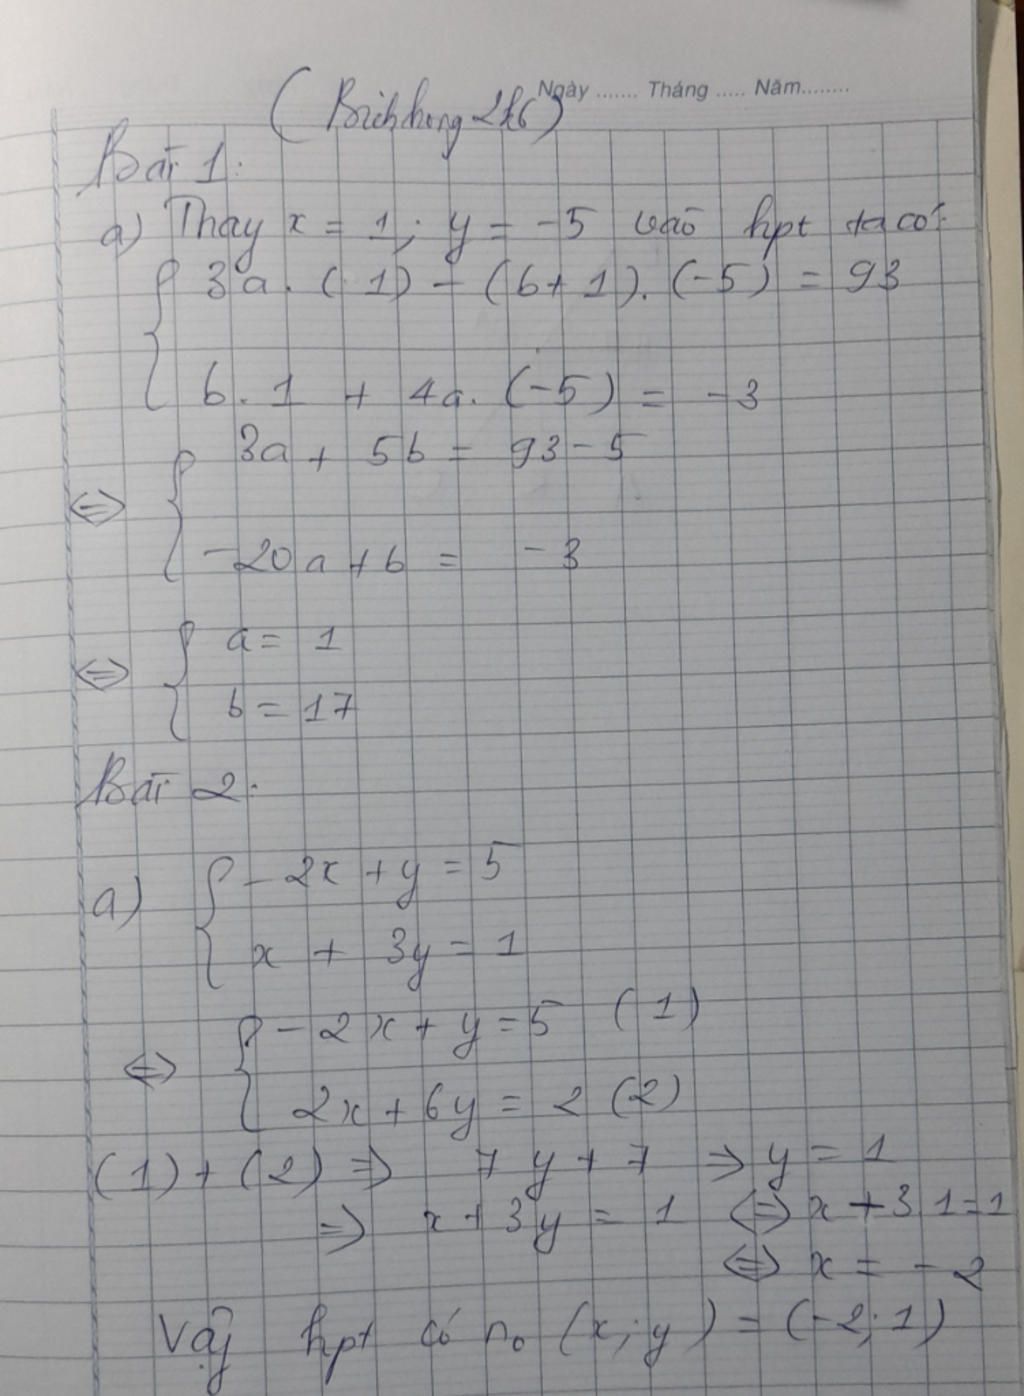 Ngày ....... Tháng ..... Năm........
(Bichhong2k6)
Bài 1:
a) Thay x = 1; y = -5 vào hpt ta có:
3a. (1) - (b+1). (-5) = 93
b. 1 + 4a. (-5) = -3
3a + 5b = 93 - 5
<=>
-20a + b = -3
a = 1
<=>
b = 17
Bài 2:
-2x + y = 5
a)
x + 3y = 1
-2x + y = 5 (1)
<=>
2x + 6y = 2 (2)
(1) + (2) => 7y + 7 => y = 1
=> x + 3y = 1 <=> x + 3.1 = 1
<=> x = -2
Vậy hpt có no (x; y) = (-2; 1)